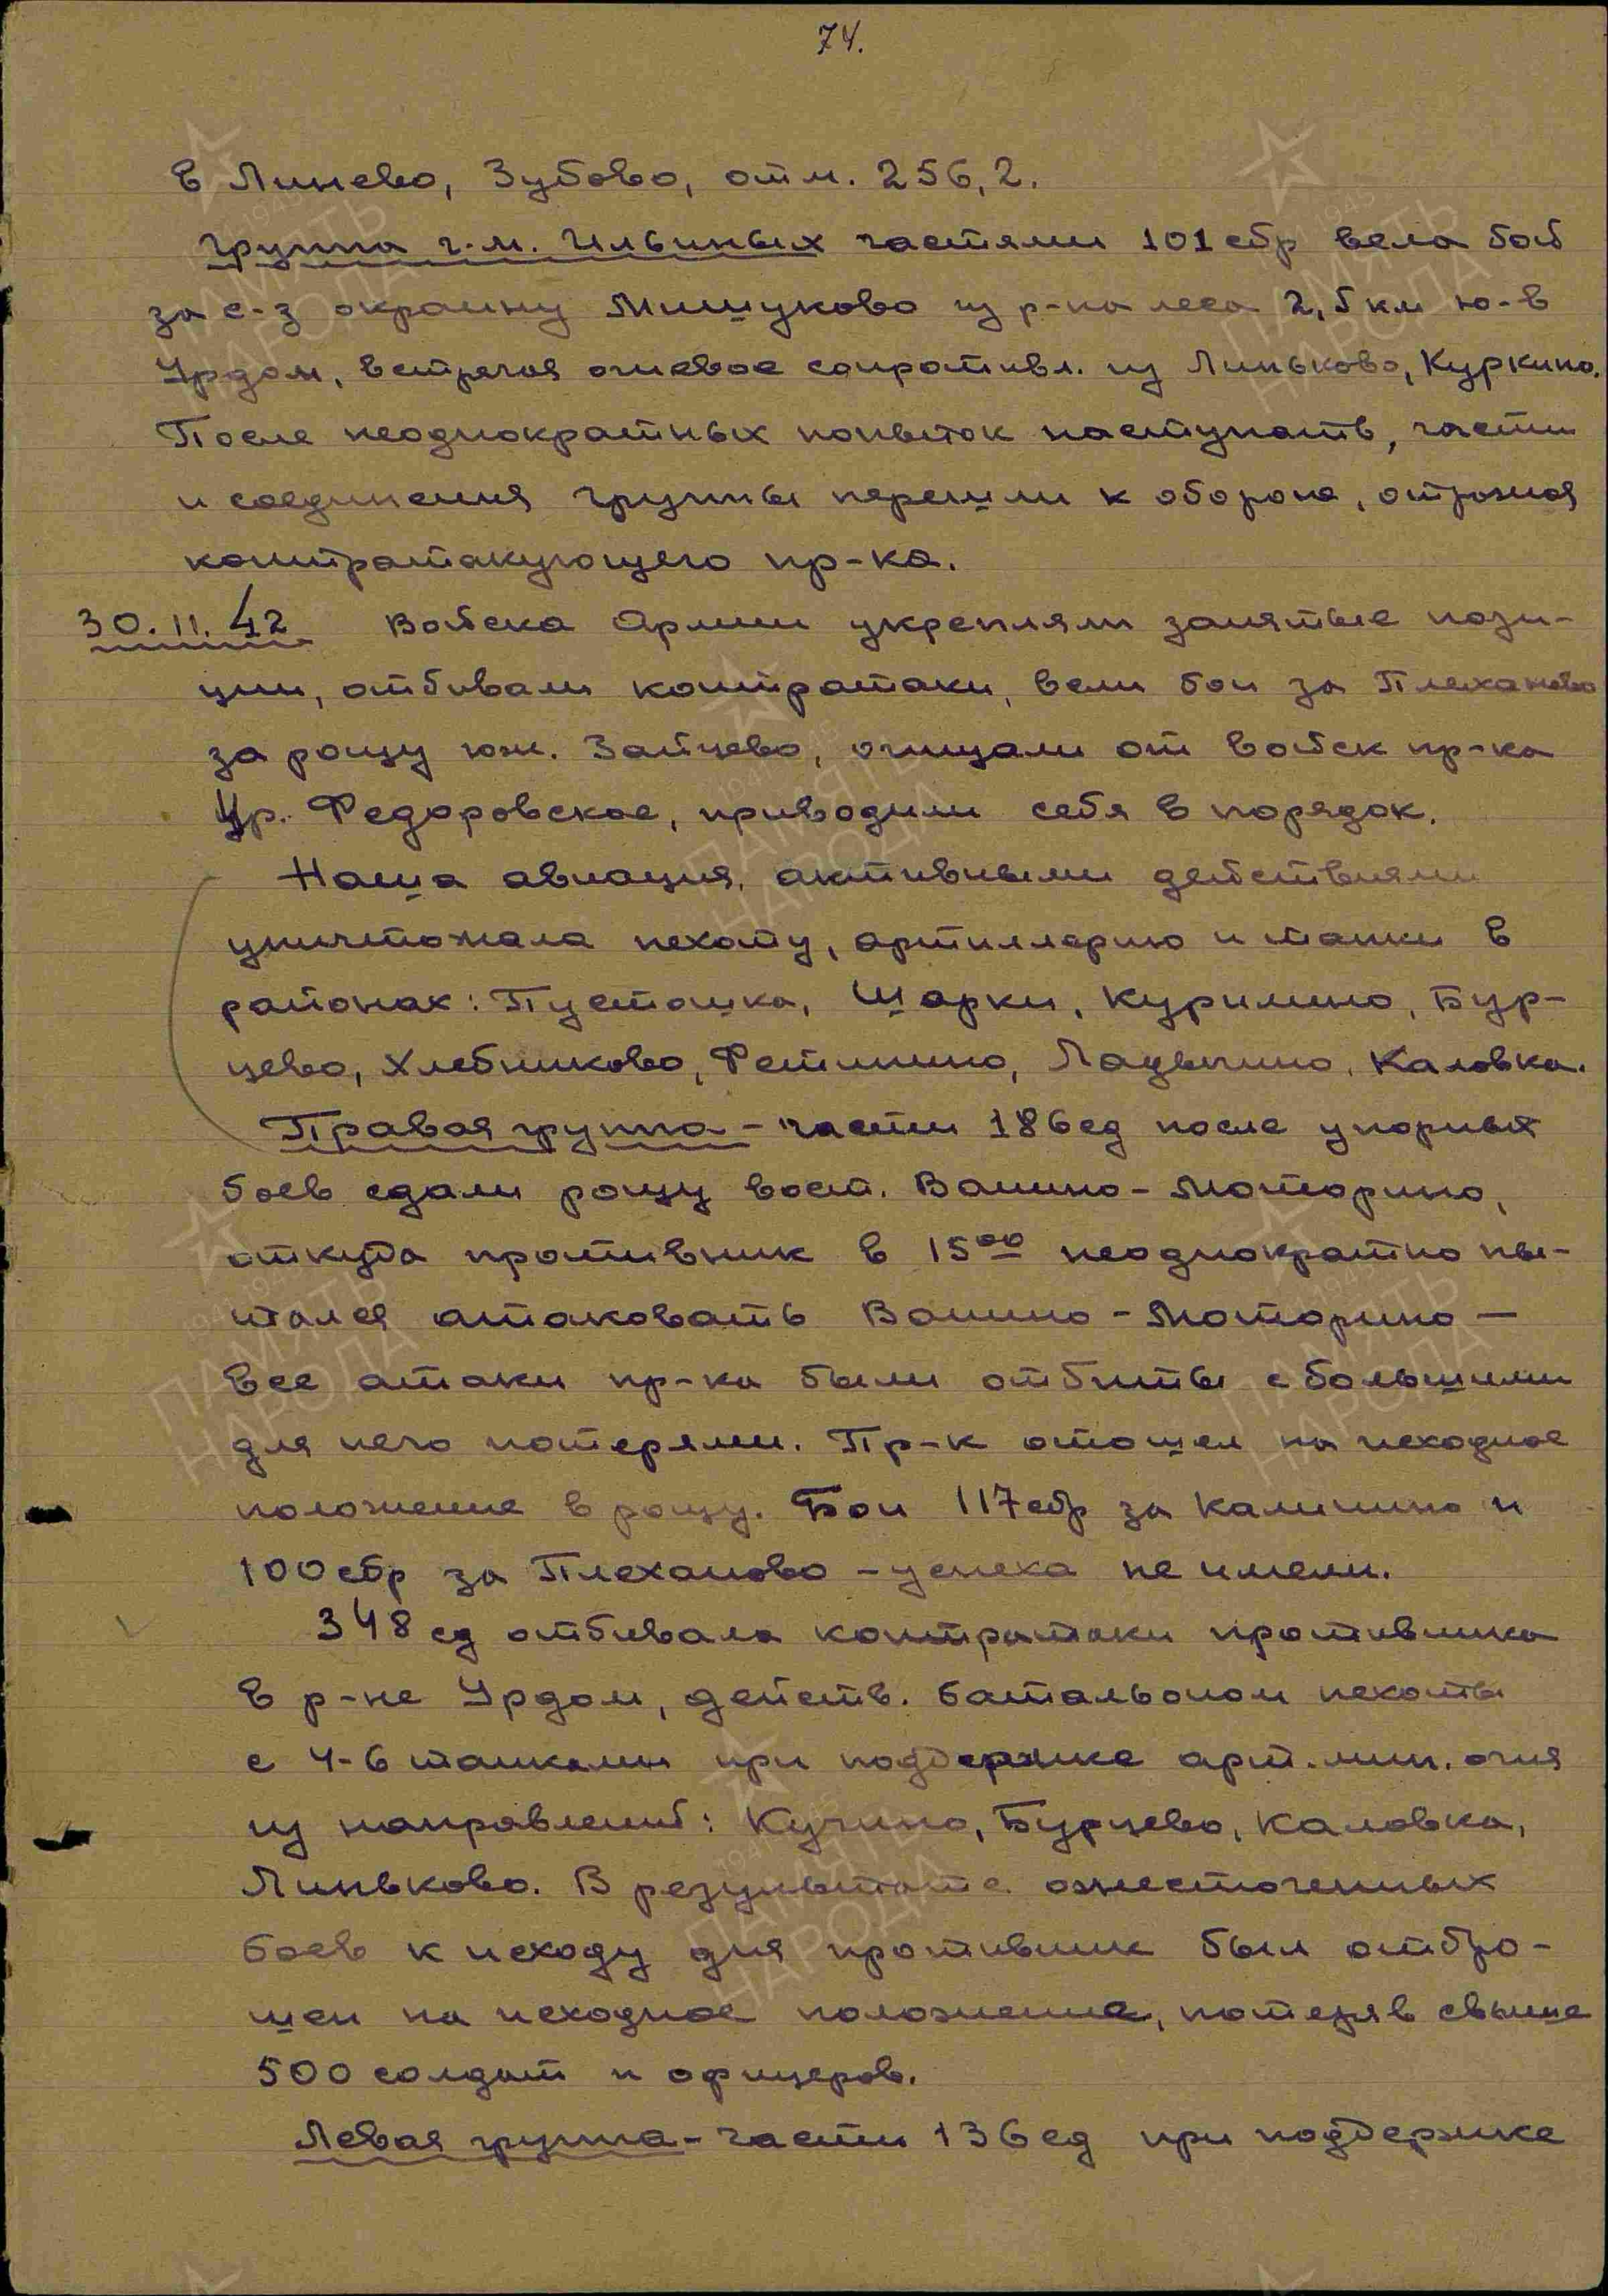 74.
в Линево, Зубово, отм. 256,2.
Группа г.м. Ильиных частями 101 сбр вела бой
за с-з окраину Мишуково из р-на леса 2,5 км ю-в
Урдом, встречая огневое сопротивл. из Линьково, Куркино.
После неоднократных попыток наступать, части
и соединения группы перешли к обороне, отражая
контратакующего пр-ка.
30.11.42 Войска Армии укрепляли занятые пози-
ции, отбивали контратаки, вели бои за Плеханово
за рощу юж. Зайцево, очищали от войск пр-ка
Ур. Федоровское, приводили себя в порядок.
Наша авиация, активными действиями
уничтожала пехоту, артиллерию и танки в
районах: Пусташка, Шарки, Куримино, Бур-
цево, Хлебниково, Фетинино, Ладыгино, Каловка.
Правая группа – части 186 сд после упорных
боев сдали рощу вост. Ванино-Моторино,
откуда противник в 15 00 неоднократно пы-
тался атаковать Ванино-Моторино –
все атаки пр-ка были отбиты с большими
для него потерями. Пр-к отошел на исходное
положение в рощу. Бои 117 сбр за Калинино и
100 сбр за Плеханово – успеха не имели.
348 сд отбивала контратаки противника
в р-не Урдом, действ. батальоном пехоты
с 4-6 танками при поддержке арт. мин. огня
из направлений: Кучино, Бурцево, Каловка,
Линьково. В результате ожесточенных
боев к исходу дня противник был отбро-
шен на исходное положение, потеряв свыше
500 солдат и офицеров.
Левая группа – части 136 сд при поддержке
1941-1945
ПАМЯТЬ
НАРОДА